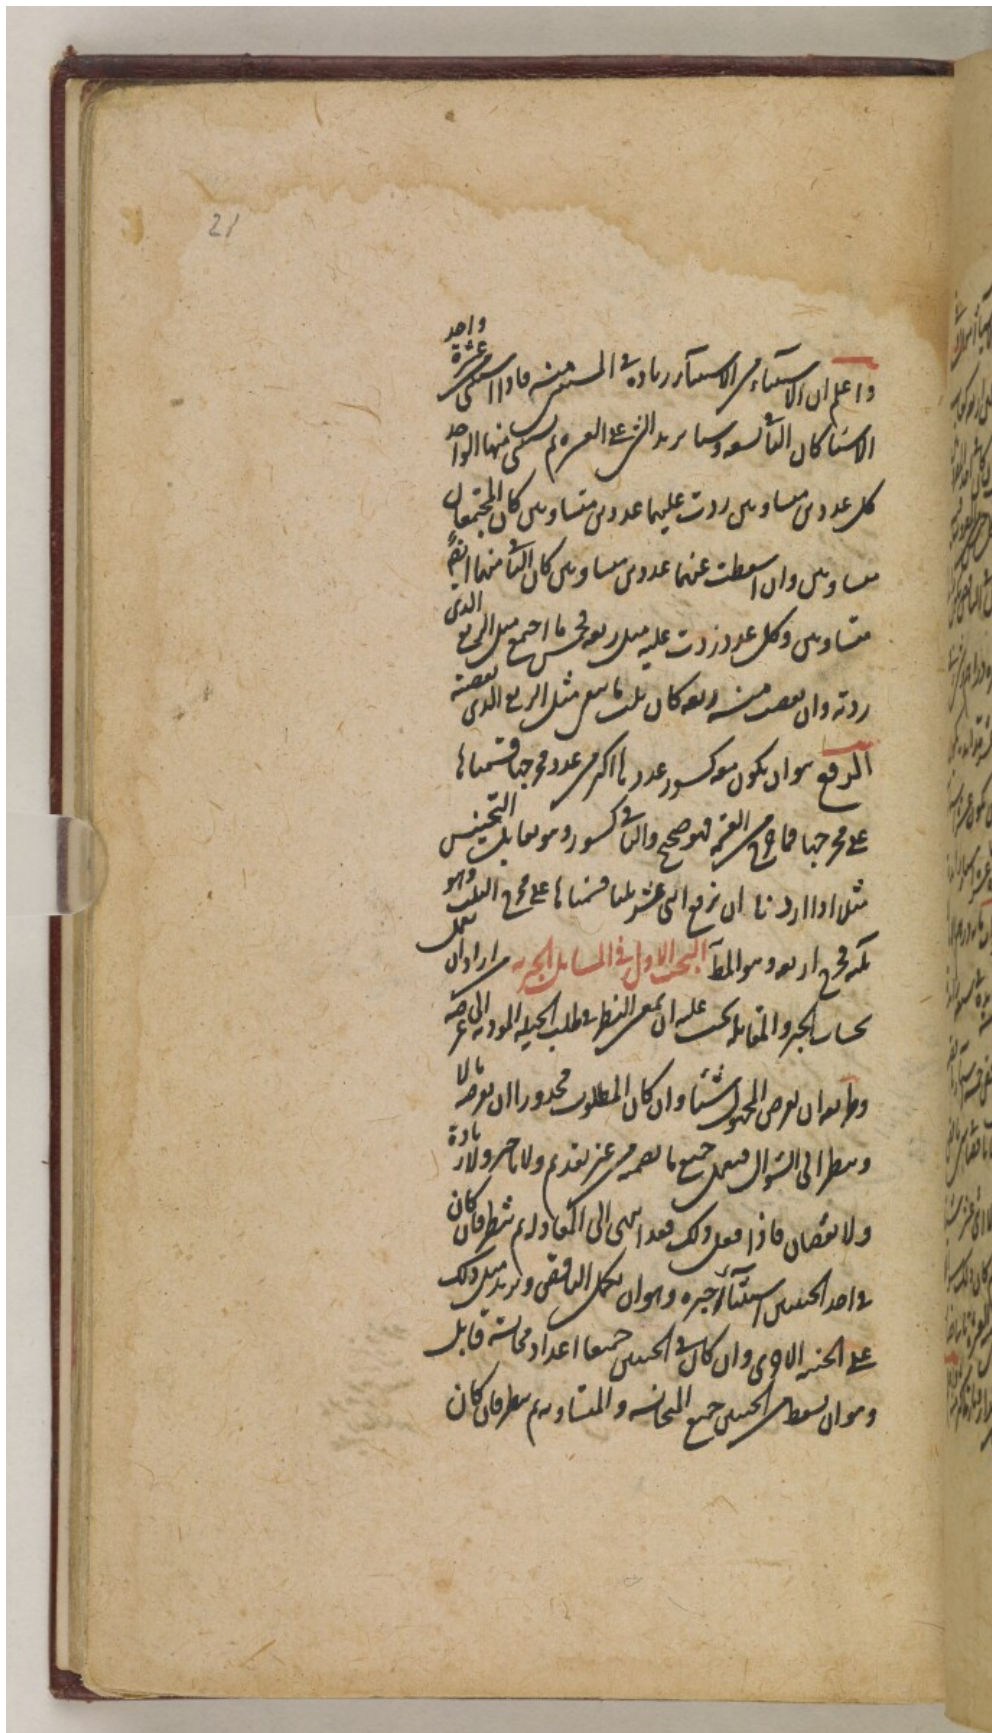 21
واعلم ان الاستثناء من الاستثناء زيادة في المستثنى منه فاذا استثنى من عشرة واحد
الاستثنا كان الباقي تسعه وشيا يريد الشي على العشره ثم يستثنى منها الواحد
كل عددين متساويين زدت عليهما عددين متساويين كان المجتمعان
متساويين وان اسقطت عنهما عددين متساويين كان الباقي منهما ايضا
متساويين وكل عدد زدت عليه مثل ربعه فخمس ما اجتمع مثل الربع الذى
زدته وان نقصت منه ربعه كان ثلث ما بقى مثل الربع الذى نقصته
الرفع هو ان يكون معه كسور عددها اكثر من عدد مخرجها قسمناها
على مخرجها فما خرج من القسمه فهو صحيح والباقي كسور وهو يقابل التجنيس
مثل اذا اردنا ان نرفع اثنى عشر ثلثا قسمناها على مخرج الثلث وهو
ثلثه فخرج اربعه وهو المط البحث الاول في المسايل الجبريه من اراد ان يعمل
بحساب الجبر والمقابله يجب عليه ان يمعن النظر في طلب الحيله المودية الى غرضه
وطريقه ان يفرض المجهول شيئا وان كان المطلوب مجذورا ان يفرضه مالا
وينظر الى السؤال فيعمل جميع ما تضمنه من غير تقديم ولا تاخير ولا زيادة
ولا نقصان فاذا فعل ذلك فقد انتهى الى المعادله ثم ننظر فان كان
في احد الجنبين استثناء جبره وهو ان يكمل الناقص ويزيد مثل ذلك
على الجنبه الاخرى وان كان في الجنبين جميعا اعداد متجانسة قابل
وهو ان يسقط من الجنبين جميع المتجانسه والمتساويه ثم ينظر فان كان